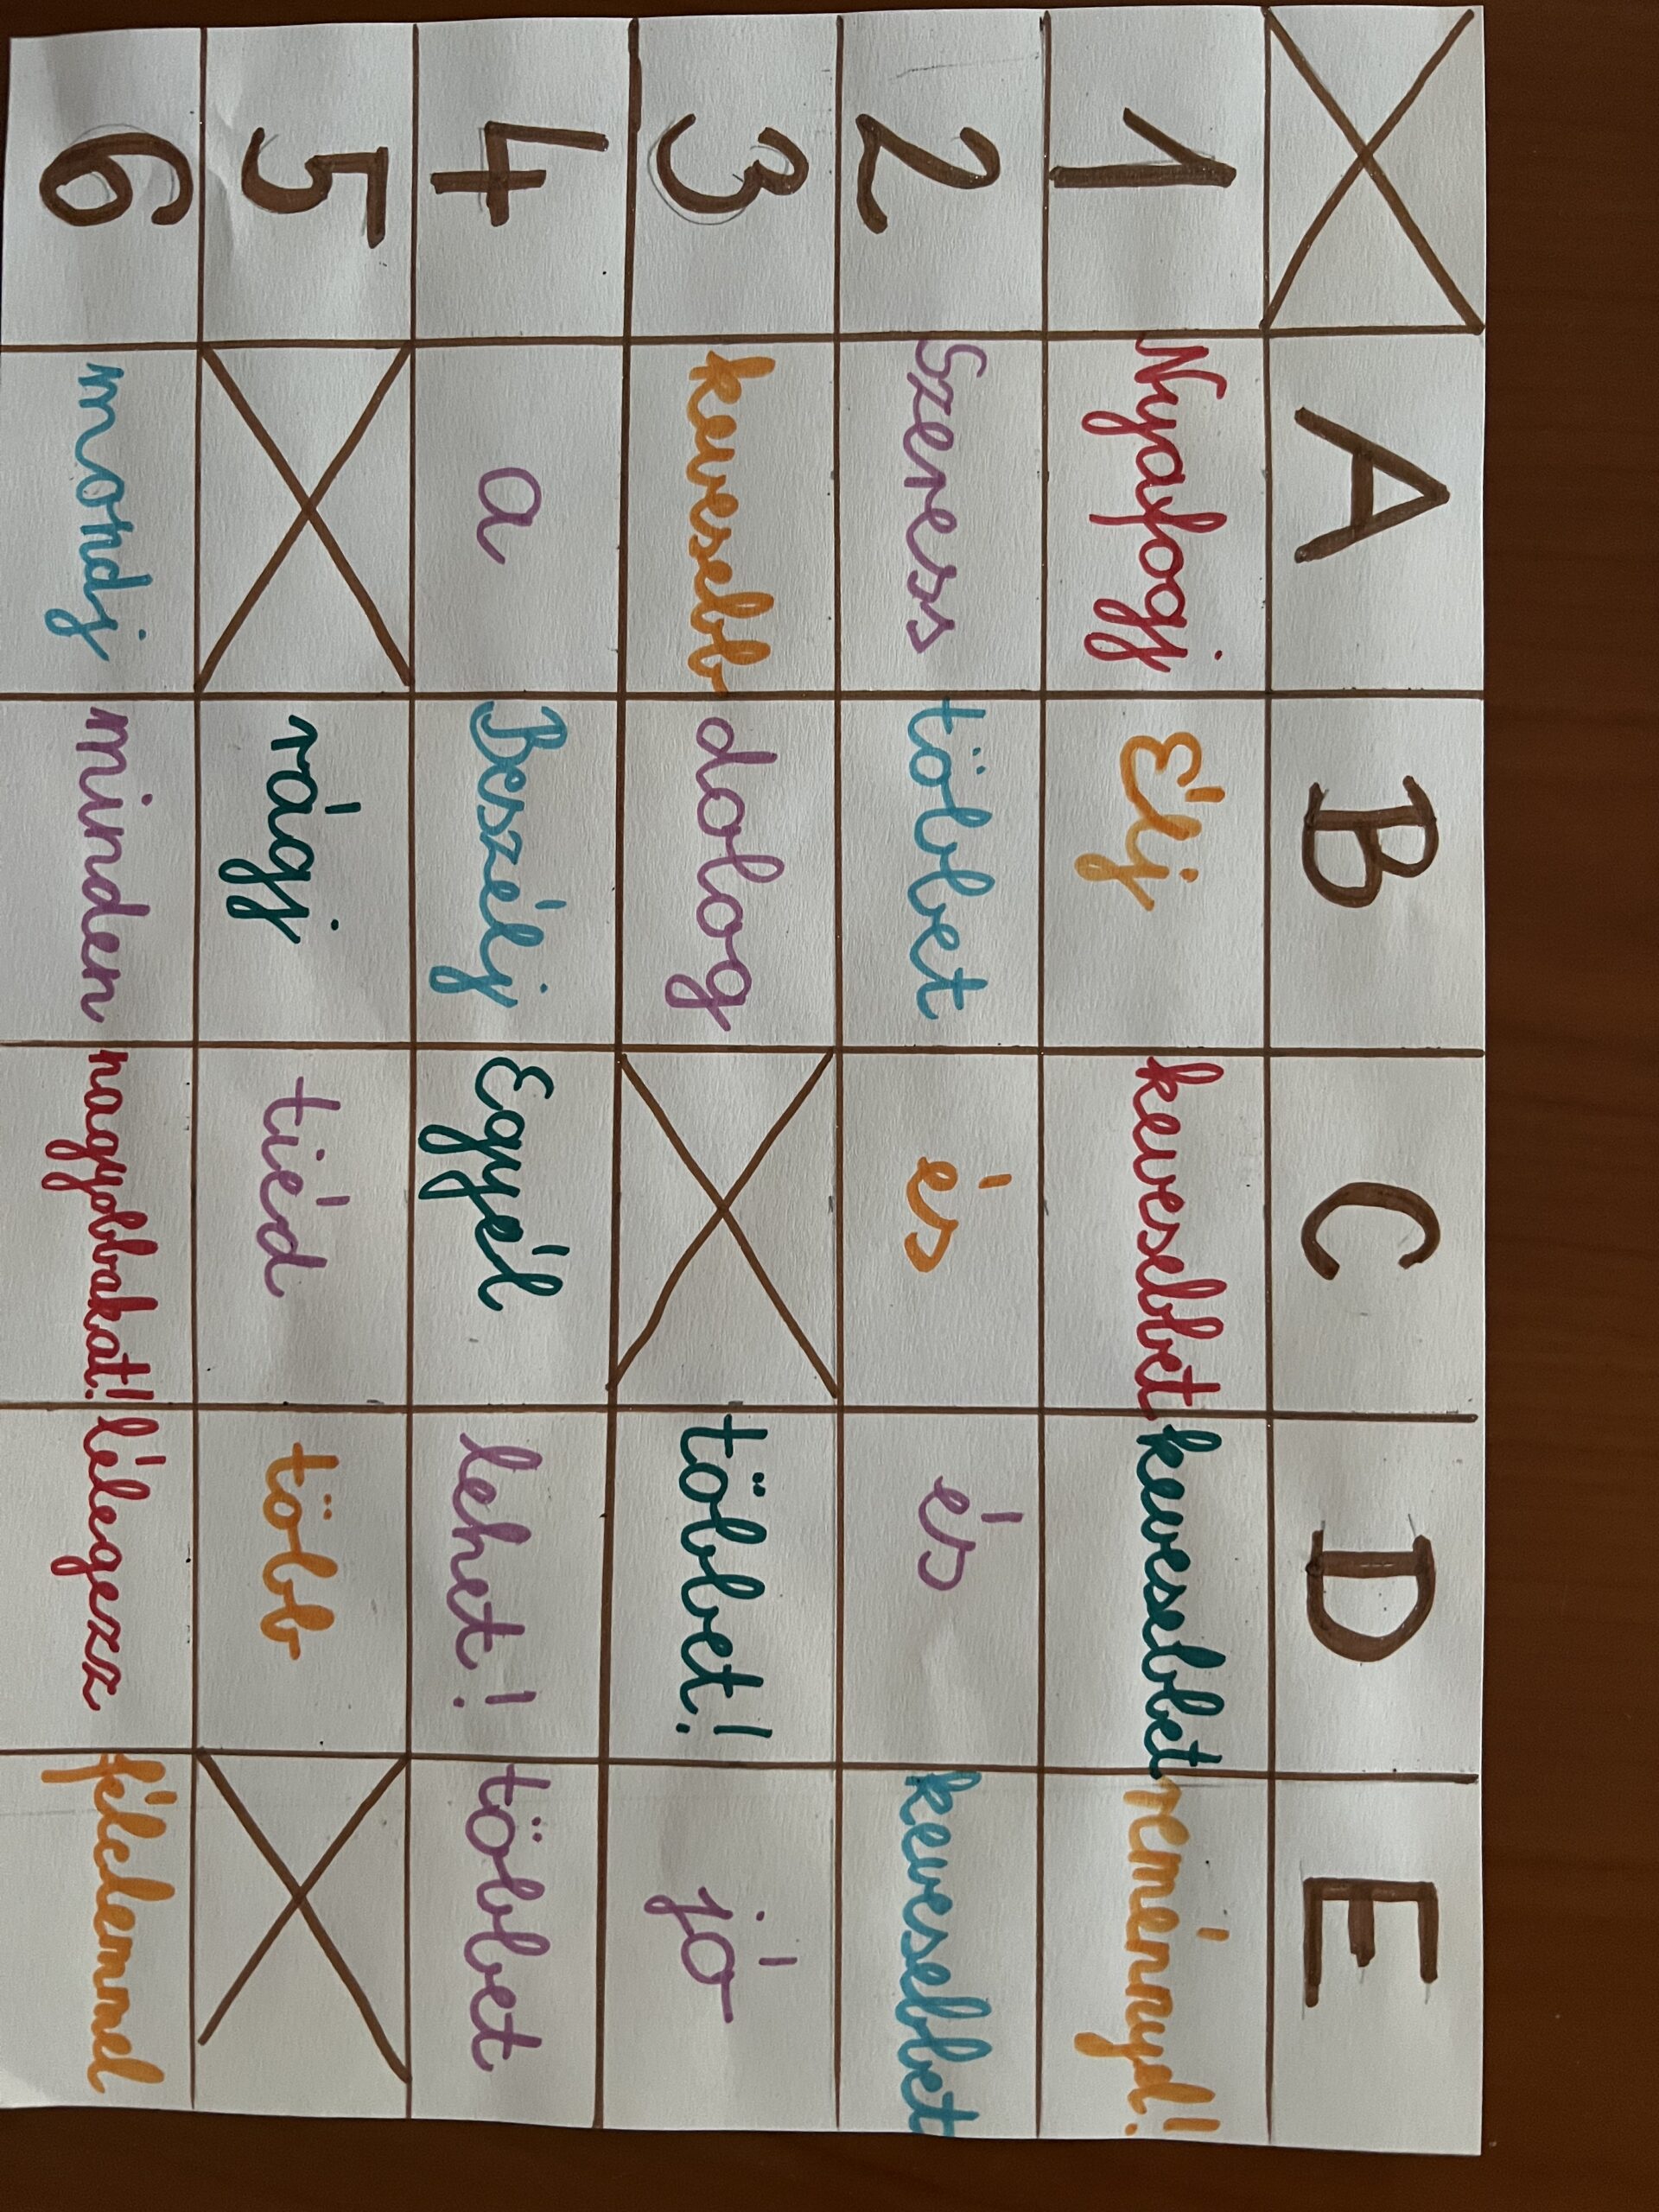 A B C D E
1 Nyafogj Élj kevesebbet kevesebbet reményed!
2 Szeress többet és és kevesebbet
3 kevesebb dolog többet! jó
4 a Beszélj Egyél lehet! többet
5 rágj tiéd több
6 mondj minden nagyobbakat! lélegezz félelemmel